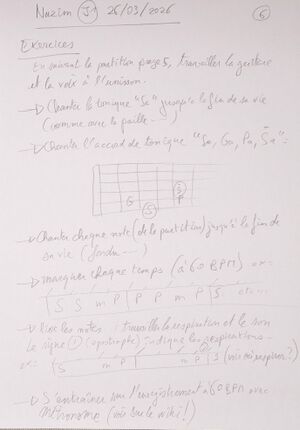 Nazim J1 26/03/2026
6
Exercices
En suivant la partition page 5, travailler la guitare
et la voix à l'unisson.
→ Chanter la tonique "Sa" jusqu'à la fin de sa vie
(comme avec la paille ... )
→ Chanter l'accord de tonique "Sa, Ga, Pa, Sa"
G S S P
→ Chanter chaque note (de la partition) jusqu'à la fin de
sa vie
→ Marquer chaque temps (à 60 BPM) ex:
S S m P P P m P S
→ Lire les notes : travailler la respiration et le son
le signe (') (apostrophe) indique les respirations.
ex: S m P P S
→ S'entraîner sur l'enregistrement à 60 BPM avec
métronome (voir sur le wiki!)